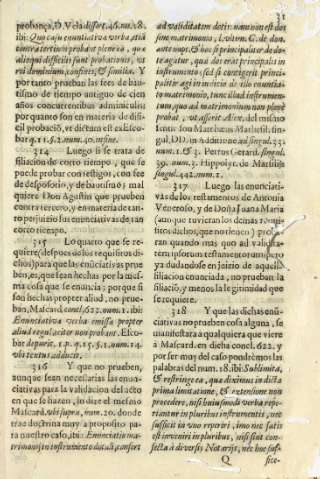 31
probança, D. Vela dissert. 46. num. 18.
ibi: Quo casu enuntiativa verba, etiã
contra tertiũ probant plene, quo
aliqui difficiles sunt probationis, ve
iuri dominium, confines, & similia. Y
por tanto prueban las fees de bau-
tismo de tiempo antiguo de cien
años concurrentibus adminiculis
por quanto son en materia de dif-
cil probaciõ, vt dictum est ex Esco-
bar q. 11. §. 2. num. 50. cum seq.
314 Luego si se trata de
filiacion de corto tiempo, que se
puede probar con testigos, con fee
de desposorio, y de bautismo; mal
quiere Don Agustin que prueben
contra tercero, y en materia de tan-
to perjuizio sus enunciativas de tan
corto tiempo.
315 Lo quarto que se re-
quiere (despues de los requisitos di-
chos) para que las enunciativas prue
ben, es, que sean hechas por la mis-
ma cosa que se enuncia; porque si
son hechas propter aliud, no prue-
ban, Mascard. concl. 622. num. 1. ibi:
Enunciativa verba emissa propter
aliud regulariter non probant. Esco-
bar de purit. 1. p. q. 15. §. 1. num. 14.
vbi textus adducit.
316 Y que no prueben,
aunque sean necessarias las enun-
ciativas para la validacion del acto
en que se hazen, lo dize el mesmo
Mascard. vbi supra, num. 20. donde
trae doctrina muy a proposito pa-
ra nuestro caso, ibi: Enunciatio ma-
trimonij in instrumento dotali, confert
ad validitatem dotis: nam non est dos
sine matrimonio, l. vltim. C. de don.
ante nup. & hoc si principaliter de do-
te agatur, quia dos erat principalis in
instrumento: sed si contigerit princi-
paliter agi in vicem de illo enuntia-
to matrimonio, tunc illud instrumen-
tum, quo ad matrimonium non plene
probat, vt asserit Alex. del mismo
sentir son Mattheus Marhesil. sin-
gul. DD. in additione ad singul. 33.
num. 1. & 3. Petrus Gerard. singul.
39. num. 3. Hippolyt. de Marsilijs
singul. 442. num. 1.
317 Luego las enunciati-
vas de los testamentos de Antonia
Veneroso, y de Doña Juana Maria
(aunque tuvieran los demas requi-
sitos dichos, que no tienen) proba-
ran quando mas quo ad valida-
tem ipsorum testamentorum; pero
ya dudandose en juizio de aquella
filiacion enunciada, no prueban la
filiaciõ, y menos la legitimidad que
se requiere.
318 Y que las dichas enu-
ciativas no prueben cosa alguna, se
manifestara à qualquiera que viere
à Mascard. en dicha concl. 622. y
por ser muy del caso pondrèmos las
palabras del num. 18. ibi: Sublimita,
& restringe ea, quæ diximus in dicta
prima limitatione, & extensione non
procedere, nisi huiusmodi verba repe-
riantur in pluribus instrumentis, nec
sufficit in vno reperiri, imo nec satis
est inveniri in pluribus, nisi sint con-
fecta à diversis Notarijs, nec hoc suf-
Q
fice-